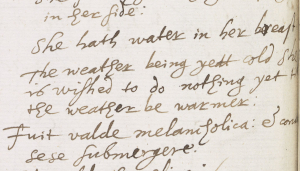 in her side:
She hath water in her breast
The weather being yett cold She
is wished to do nothing yet t
the weather be warmer:
Fuit valde melancholica: & con
sese submergere: